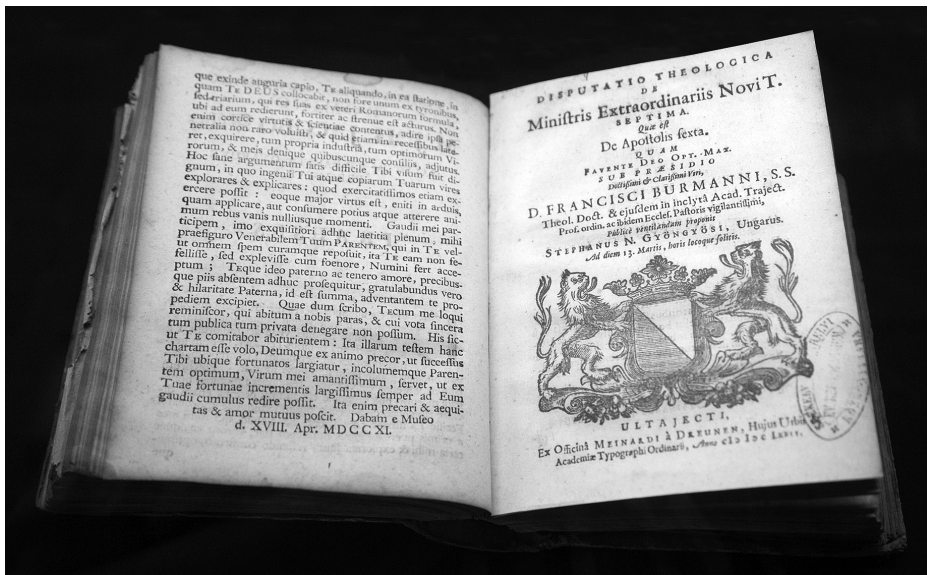 que exinde auguria capio, TE aliquando, in ea ſtatione, in
quam TE DEUS collocabit, non fore unum ex tyronibus,
ſed triarium, qui res ſuas ex veteri Romanorum formula,
ubi ad eum redierunt, fortiter ac ſtrenue eſt acturus. Non
enim cortice virtutis & ſcientiae contentus, adire ipſa pe-
netralia non raro voluiſti, & quid etiam in receſſibus late-
ret, exquirere, tum propria induſtria, tum optimorum Vi-
rorum, & meis denique quibuscunque conſiliis, adjutus.
Hoc ſane argumentum ſatis difficile Tibi viſum fuit di-
gnum, in quo ingenii Tui atque copiarum Tuarum vires
explorares & explicares: quod exercitatiſſimos etiam ex-
ercere poſſit: eoque major virtus eſt, eniti in arduis,
quam applicare, aut conſumere potius atque atterere ani-
mum rebus vanis nulliusque momenti. Gaudii mei par-
ticipem, imo exquiſitiori adhuc laetitia plenum, mihi
praefiguro Venerabilem Tuum PARENTEM, qui in TE vel-
ut omnem ſpem curamque repoſuit, ita TE eam non fe-
felliſſe, ſed expleviſſe cum foenore, Numini fert acce-
ptum; TEque ideo paterno ac tenero amore, precibus-
que piis abſentem adhuc proſequitur, gratulabundus vero
& hilaritate Paterna, id eſt ſumma, adventantem te pro-
pediem excipiet. Quae dum ſcribo, TECUM me loqui
reminiſcor, qui abitum a nobis paras, & cui vota ſincera
tum publica tum privata denegare non poſſum. His ſic-
ut TE comitabor abiturientem: Ita illarum teſtem hanc
chartam eſſe volo, Deumque ex animo precor, ut ſucceſſus
Tibi ubique fortunatos largiatur, incolumemque Paren-
tem optimum, Virum mei amantiſſimum, ſervet, ut ex
Tuae fortunae incrementis largiſſimus ſemper ad Eum
gaudii cumulus redire poſſit. Ita enim precari & aequi-
tas & amor mutuus poſcit. Dabam e Muſeo
d. XVIII. Apr. MDCCXI.
DISPUTATIO THEOLOGICA
DE
Miniſtris Extraordinariis Novi T.
SEPTIMA.
Quæ eſt
De Apoſtolis ſexta.
QUAM
FAVENTE DEO OPT. MAX.
SUB PRÆSIDIO
Doctiſſimi & Clariſſimi Viri,
D. FRANCISCI BURMANNI, S. S.
Theol. Doct. & ejuſdem in inclytâ Acad. Traject.
Prof. ordin. ac ibidem Eccleſ. Paſtoris vigilantiſſimi,
Publicè ventilandam proponit
STEPHANUS N. GYÖNGYÖSI, Ungarus.
Ad diem 13. Martis, horis locoque ſolitis.
ULTAJECTI,
Ex Officinâ MEINARDI à DREUNEN, Hujus Urbis
Academiæ Typographi Ordinarii, Anno